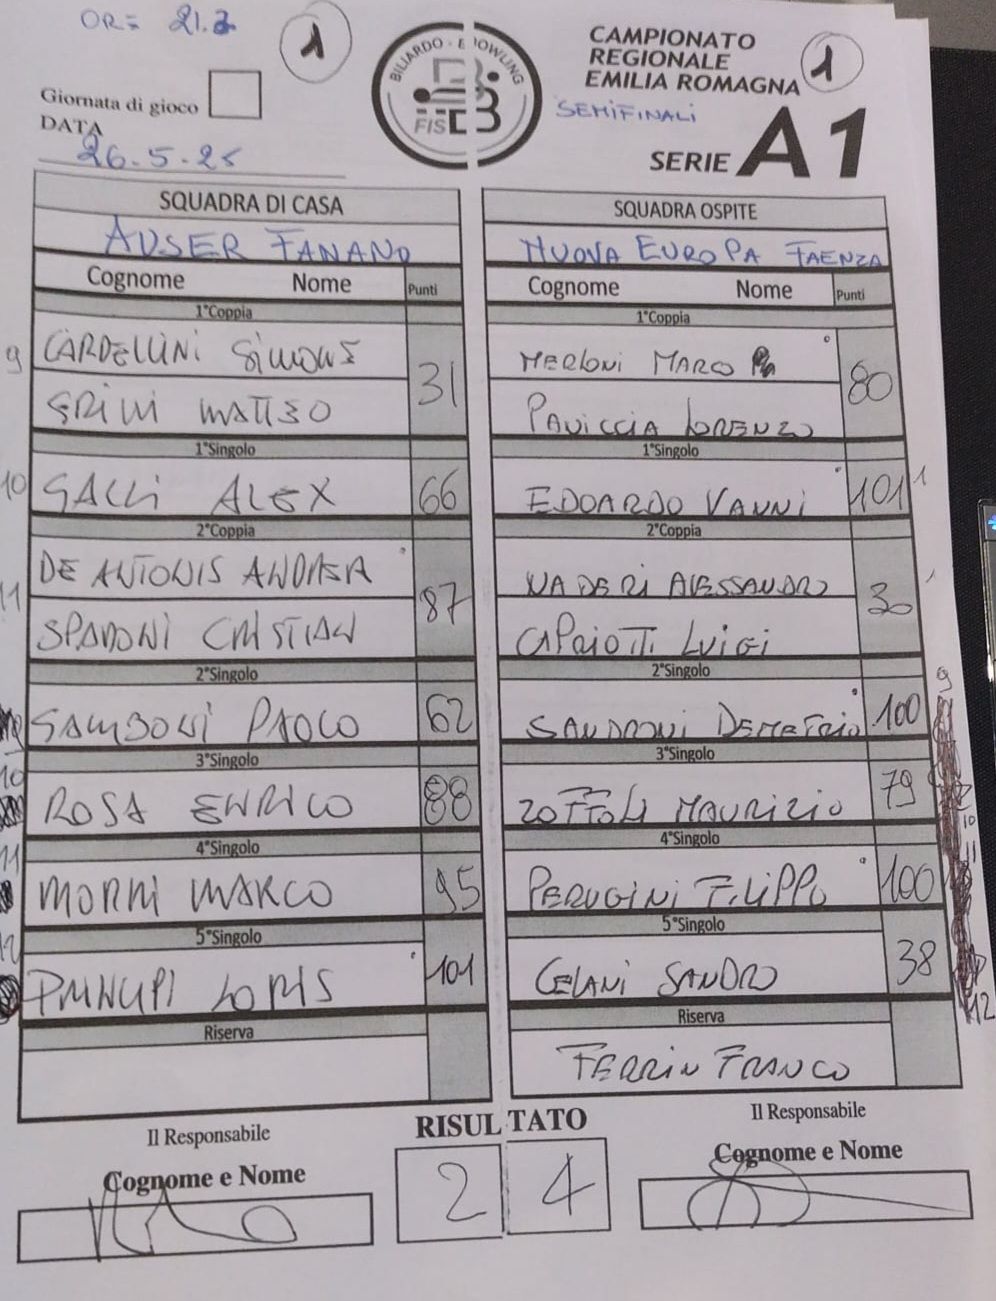 OR= 21.3
1
BILIARDO - E BOWLING
FISBB
CAMPIONATO
REGIONALE
EMILIA ROMAGNA
1
SEMIFINALI
SERIE A1
Giornata di gioco
DATA
26.5.25
SQUADRA DI CASA SQUADRA OSPITE
AUSER FANANO NUOVA EUROPA FAENZA
Cognome Nome Punti Cognome Nome Punti
1°Coppia 1°Coppia
9 CARDELLINI SIMONE 31 MERLONI MARCO 80
GRILLI MATTEO PAVICCIA LORENZO
1°Singolo 1°Singolo
10 GALLI ALEX 66 EDOARDO VANNI 101 1
2°Coppia 2°Coppia
DE ANTONIS ANDREA 87 NADERI ALESSANDRO 30
11 SPADONI CRISTIAN CAPAIOTTI LUIGI
2°Singolo 2°Singolo
GAMBONI PAOLO 62 SANDRONI DEMETRIO 100 9
3°Singolo 3°Singolo
10 ROSA ENRICO 88 ZOFFOLI MAURIZIO 79 10
4°Singolo 4°Singolo
11 MORRI MARCO 95 PERUGINI FILIPPO 100 11
5°Singolo 5°Singolo
12 PRINCIPI LORIS 101 CELANI SANDRO 38 12
Riserva Riserva
FERRIN FRANCO
Il Responsabile RISULTATO Il Responsabile
Cognome e Nome 2 4 Cognome e Nome